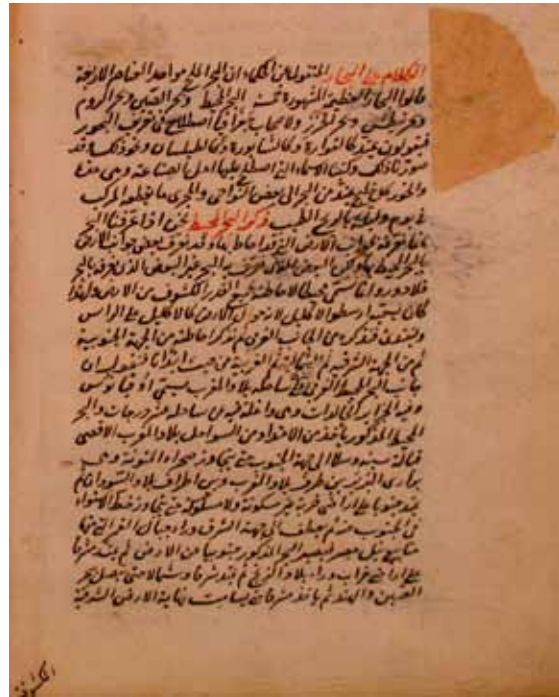 الكلام على البحار المنقول عن الحكماء ان البحر المالح هو احد العناصر الاربعة
قالوا البحار العظيمة المشهورة خمسة البحر المحيط وبحر الصين وبحر الروم
وبحر نيطش وبحر الخزر ولاصحاب جغرافيا اصطلاح في تعريف البحور
فيقولون عنه كالقوارة وكالشابورة وكالطيلسان ونحو ذلك وقد
صورنا ذلك وكتبنا الاسماء التي اصطلح عليها اهل الصناعة وهي هذه
والخور كل خليج عند من البحر الى بعض النواحي والمجرى ما تقطعه المركب
في يوم وليلة بالريح الطيب ذكر البحر المحيط نحن اذا عرفنا البحر
بانه
بالبحر المحيط
فلا دور وانما سمى محيطا لاحاطته بجميع القدر المكشوف من الارض ولهذا
كان يسميه ارسطو الاكليل لانه حول الارض كالاكليل على الراس
فنذكر من الجانب الغربي ثم نذكر احاطته من الجهة الجنوبية
ثم من الجهة الشرقية ثم الشمالية ثم الغربية من حيث ابتدانا فنقول ان
جانب البحر المحيط الغربي الذي في ساحله بلاد المغرب يسمى اوقيانوس
وفيه الجزاير الخالدات وهي داخلة فيه عن ساحله عشر درجات والبحر
المحيط المذكور ياخذ في الامتداد من السواحل بلاد المغرب الاقصى
قبالة سبتة وسلا الى جهة الجنوب حتى يتجاوز صحراء لمتونة وهي
برارى للبربر بين طرف بلاد المغرب وبين اطراف بلاد السودان ثم
يمتد جنوبا على اراضى خربة غير مسكونة ولا مسلوكة حتى يتجاوز خط الاستواء
في الجنوب عنه ثم يعطف الى جهة الشرق وراء جبال القمر التي منها
منابع نيل مصر فيصير البحر المذكور جنوبيا عن الارض ثم يمتد شرقا
على اراضى خراب وراء بلاد الزنج ثم يمتد شرقا وشمالا حتى يتصل ببحر
الصين والهند ثم ياخذ مشرقا حتى يسامت نهاية الارض الشرقية
المكشوفة